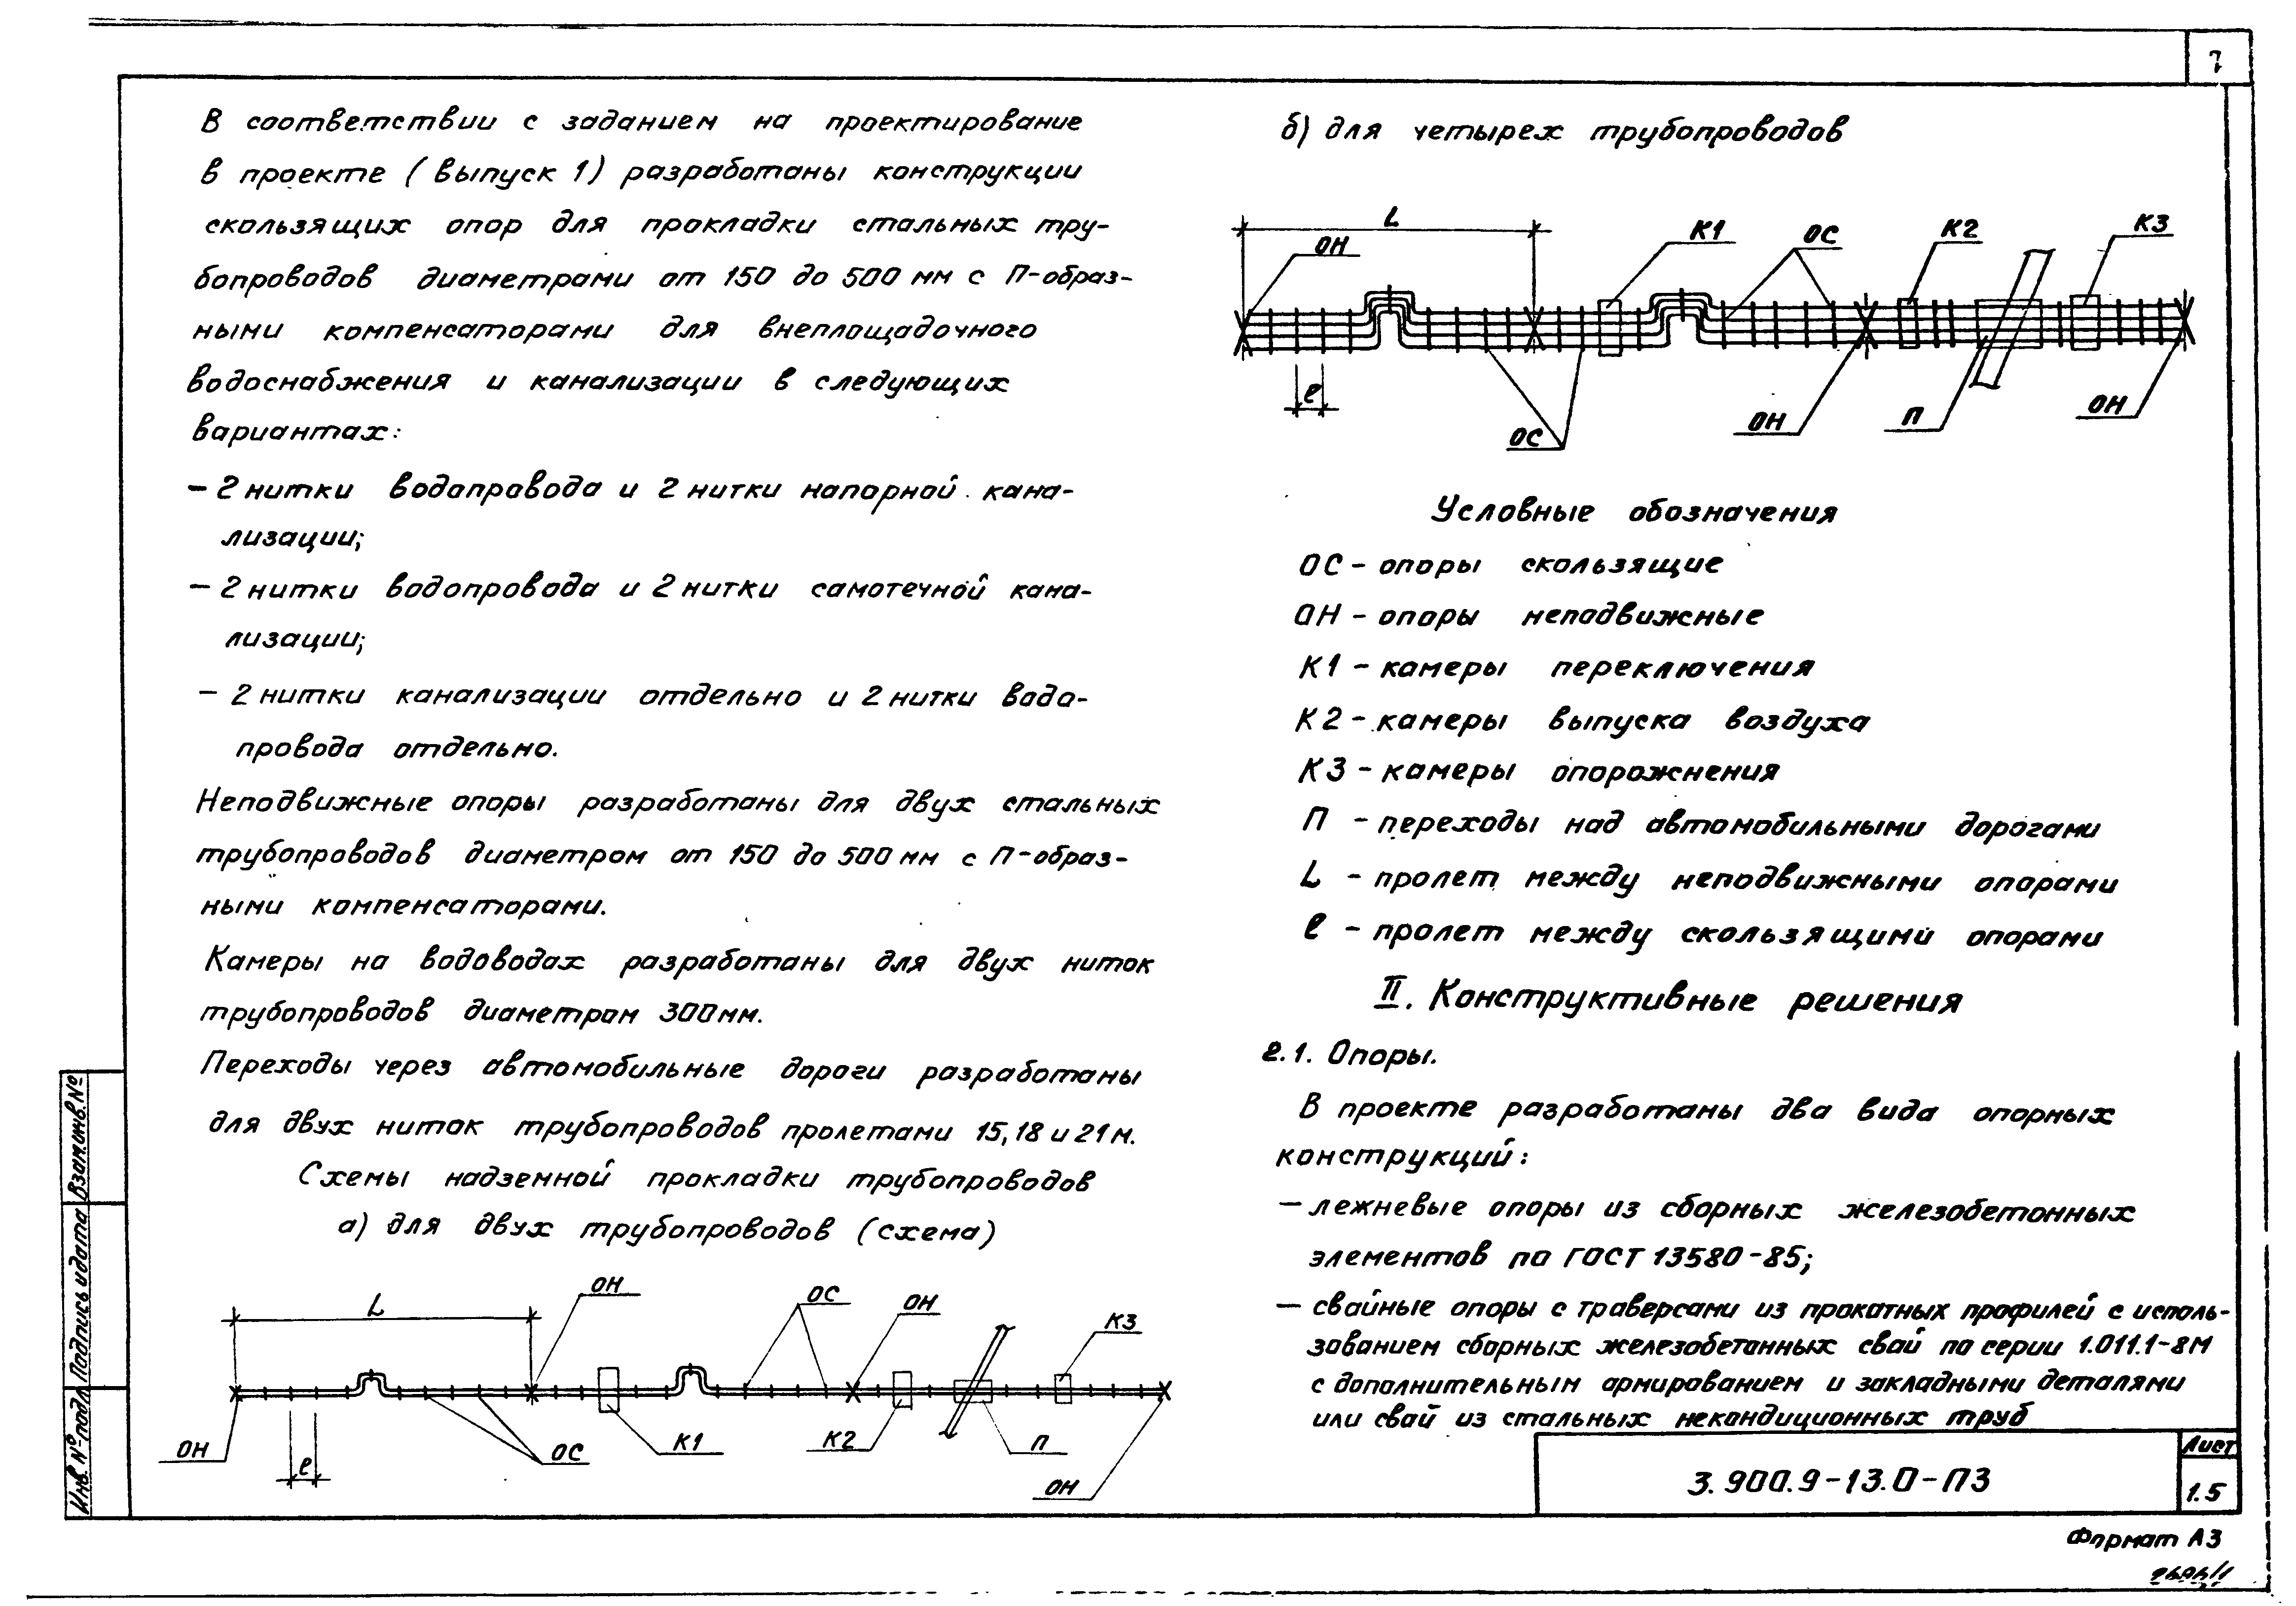 7
В соответствии с заданием на проектирование
в проекте (выпуск 1) разработаны конструкции
скользящих опор для прокладки стальных тру-
бопроводов диаметрами от 150 до 500 мм с П-образ-
ными компенсаторами для внеплощадочного
водоснабжения и канализации в следующих
вариантах:
- 2 нитки водопровода и 2 нитки напорной кана-
лизации;
- 2 нитки водопровода и 2 нитки самотечной кана-
лизации;
- 2 нитки канализации отдельно и 2 нитки водо-
провода отдельно.
Неподвижные опоры разработаны для двух стальных
трубопроводов диаметром от 150 до 500 мм с П-образ-
ными компенсаторами.
Камеры на водоводах разработаны для двух ниток
трубопроводов диаметром 300 мм.
Переходы через автомобильные дороги разработаны
для двух ниток трубопроводов пролетами 15, 18 и 21 м.
Схемы надземной прокладки трубопроводов
а) для двух трубопроводов (схема)
L
ОН
ОС
ОН
К3
ОН
l
ОС
К1
К2
П
ОН
б) для четырех трубопроводов
L
ОН
К1
ОС
К2
К3
l
ОС
ОН
П
ОН
Условные обозначения
ОС - опоры скользящие
ОН - опоры неподвижные
К1 - камеры переключения
К2 - камеры выпуска воздуха
К3 - камеры опорожнения
П - переходы над автомобильными дорогами
L - пролет между неподвижными опорами
l - пролет между скользящими опорами
II. Конструктивные решения
2.1. Опоры.
В проекте разработаны два вида опорных
конструкций:
- лежневые опоры из сборных железобетонных
элементов по ГОСТ 13580-85;
- свайные опоры с траверсами из прокатных профилей с исполь-
зованием сборных железобетонных свай по серии 1.011.1-8М
с дополнительным армированием и закладными деталями
или свай из стальных некондиционных труб
3.900.9-13.0-ПЗ
Лист
1.5
Формат А3
Взам.инв.№
Подпись и дата
Инв. № подл